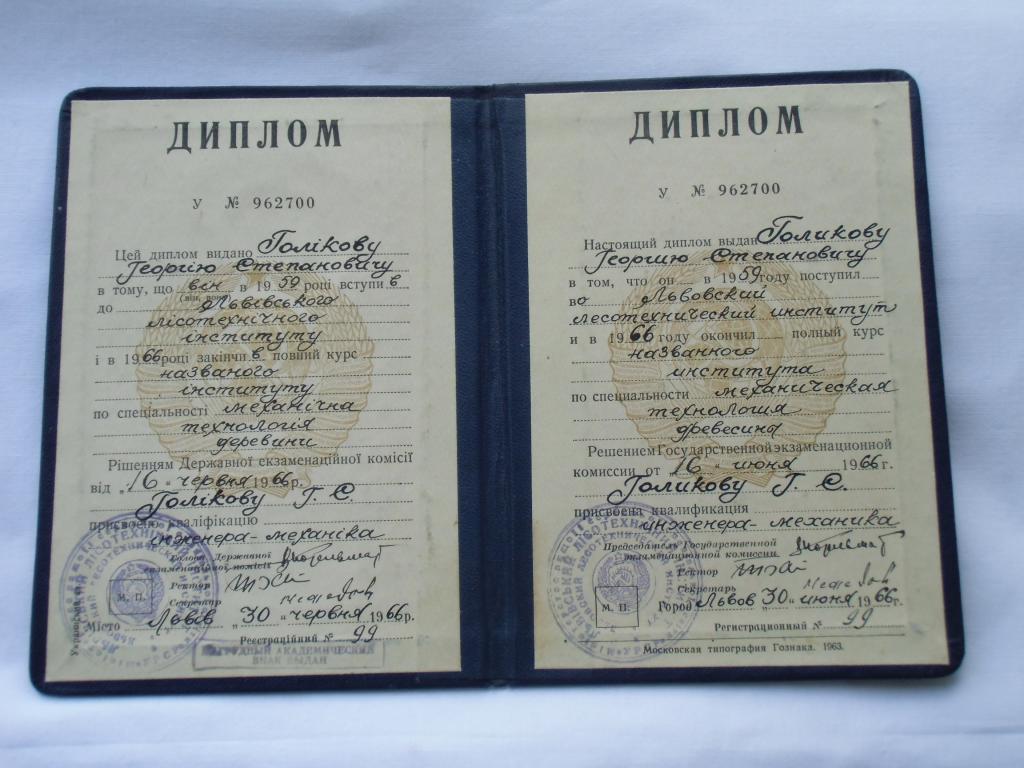 ДИПЛОМ
У № 962700
Цей диплом видано Голікову
Георгію Степановичу
в тому, що він в 1959 році вступив
(він, вона)
до Львівського
лісотехнічного
інституту
і в 1966 році закінчив повний курс
названого
інституту
по спеціальності механічна
технологія
деревини
Рішенням Державної екзаменаційної комісії
від „16" червня 1966 р.
Голікову Г. С.
присвоєно кваліфікацію
інженера-механіка
Голова Державної
екзаменаційної комісії
Ректор
Секретар
М. П.
Місто Львів „30" червня 1966 р.
Реєстраційний № 99
НАГРУДНЫЙ АКАДЕМИЧЕСКИЙ
ЗНАК ВЫДАН
ДИПЛОМ
У № 962700
Настоящий диплом выдан Голикову
Георгию Степановичу
в том, что он в 1959 году поступил
во Львовский
лесотехнический институт
и в 1966 году окончил полный курс
названного
института
по специальности механическая
технология
древесины
Решением Государственной экзаменационной
комиссии от „16" июня 1966 г.
Голикову Г. С.
присвоена квалификация
инженера-механика
Председатель Государственной
экзаменационной комиссии
Ректор
Секретарь
М. П.
Город Львов „30" июня 1966 г.
Регистрационный № 99
Московская типография Гознака. 1963.